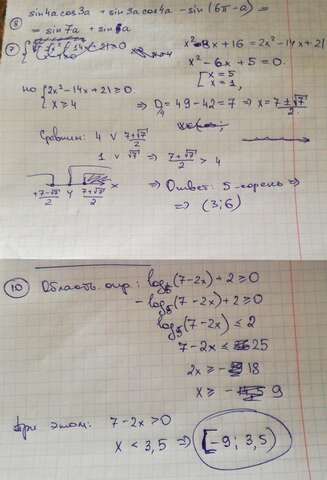 ⑥ sin4a cos3a + sin3a cos4a - sin(6π-a) =
= sin7a + sina
⑦ x²-8x+16 = 2x²-14x+21
x²-6x+5=0.
[x=5
x=1,
но {2x²-14x+21≥0.
x≥4
⇒ D/4 = 49-42=7 ⇒ x = 7±√7/2
Сравним: 4 ∨ 7+√7/2
1 ∨ √7 ⇒ 7+√7/2 > 4
7-√7/2 4 7+√7/2 x
⇒ Ответ: 5-корень ⇒
⇒ (3;6)
⑩ Область опр: (7-2x)+2≥0
-log₅(7-2x)+2≥0
log₅(7-2x)≤2
7-2x≤25
2x≥-18
x≥-9
При этом: 7-2x>0
x<3,5 ⇒ [-9; 3,5)